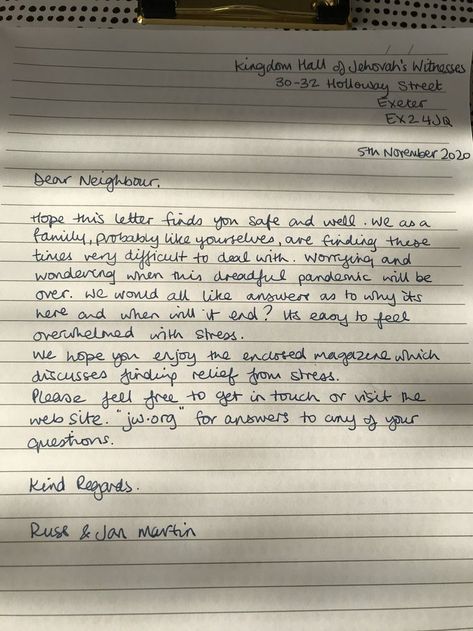 Kingdom Hall of Jehovah's Witnesses
30-32 Holloway Street
Exeter
EX2 4JQ
5th November 2020
Dear Neighbour.
Hope this letter finds you safe and well. We as a
family, probably like yourselves, are finding these
times very difficult to deal with. Worrying and
wondering when this dreadful pandemic will be
over. We would all like answers as to why its
here and when will it end? Its easy to feel
overwhelmed with stress.
We hope you enjoy the enclosed magazine which
discusses finding relief from stress.
Please feel free to get in touch or visit the
web site. "jw.org" for answers to any of your
questions.
Kind Regards.
Russ & Jan Martin